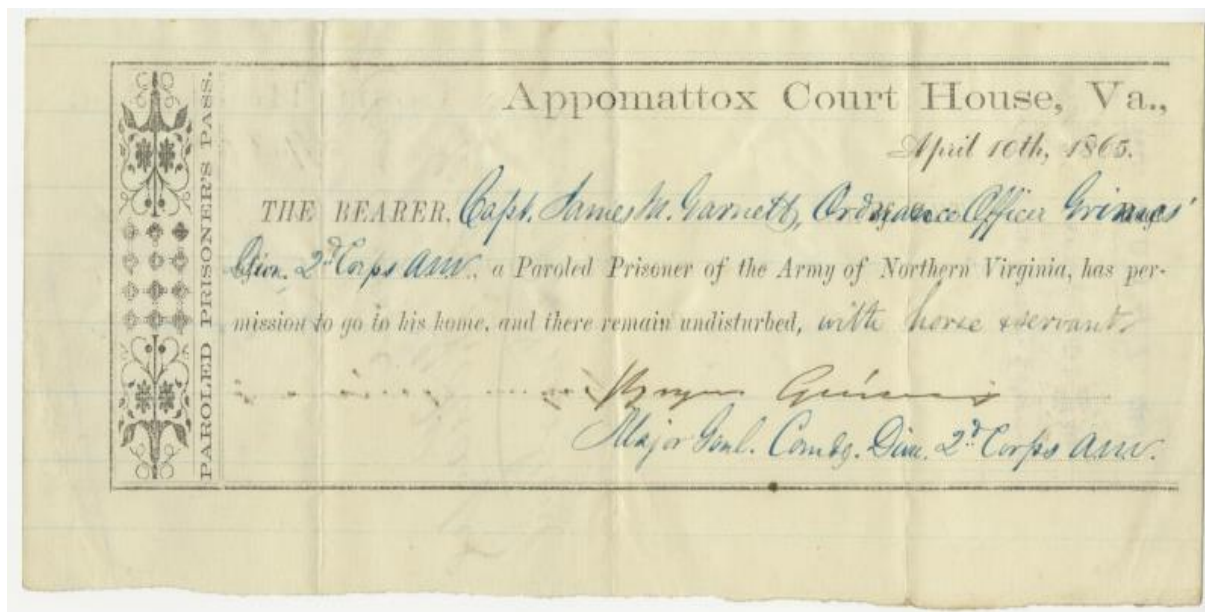 Appomattox Court House, Va.,
April 10th, 1865.
THE BEARER, Capt. James M. Garnett, Ordnance Officer Grimes'
Divn. 2d Corps ANV., a Paroled Prisoner of the Army of Northern Virginia, has per-
mission to go to his home, and there remain undisturbed, with horse & servant.
Bryan Grimes
Major Genl. Comdg. Divn. 2d Corps ANV.
PAROLED PRISONER'S PASS.